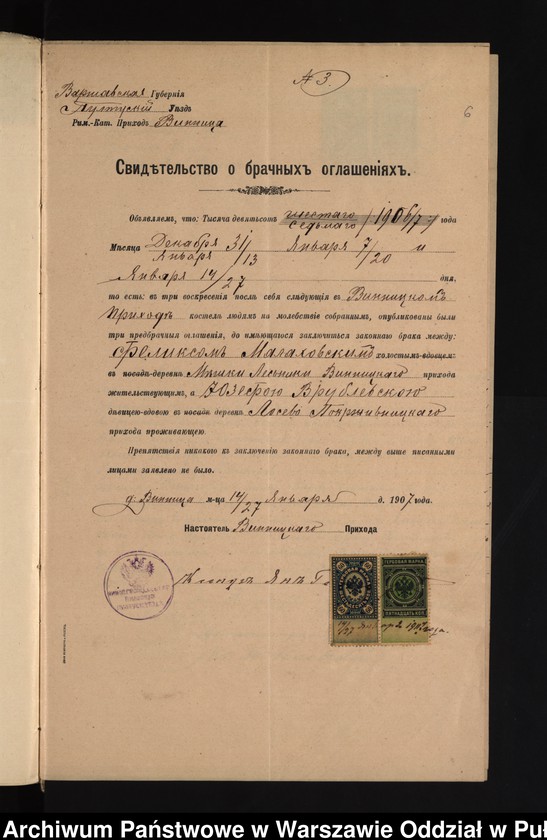 № 3.
6
Варшавская Губернія
Пултускій Уѣздъ
Рим.-Кат. Приходъ Винница
Свидѣтельство о брачныхъ оглашеніяхъ.
Объявляемъ, что: Тысяча девятьсотъ шестаго седьмаго /1906/7 г/ года
Мѣсяца Декабря 31/ Января 13 Января 7/20 и
Января 14/27 дня,
то есть: въ три воскресенія послѣ себя слѣдующія въ Винницкомъ
Приходѣ костелѣ людямъ на молебствіе собраннымъ, опубликованы были
три предбрачныя оглашенія, до имѣющагося заключиться законнаго брака между:
Феликсомъ Малаховскимъ холостымъ-вдовцемъ:
въ посадѣ-деревнѣ Винницкаго прихода
жительствующимъ, а Юзефою Врублевскою
дѣвицею-вдовою въ посадѣ деревнѣ Лосево Покрживницкаго
прихода проживающею.
Препятствія никакого къ заключенію законнаго брака, между выше писанными
лицами заявлено не было.
д. Винница м-ца 14/27 Января д. 1907 года.
Настоятель Винницкаго Прихода
Ксендзъ Янъ
ГЕРБОВАЯ МАРКА
ГЕРБОВАЯ МАРКА
ПЯТНАДЦАТЬ КОП.
14/27 Января 1907 года.
Archiwum Państwowe w Warszawie Oddział w Puł